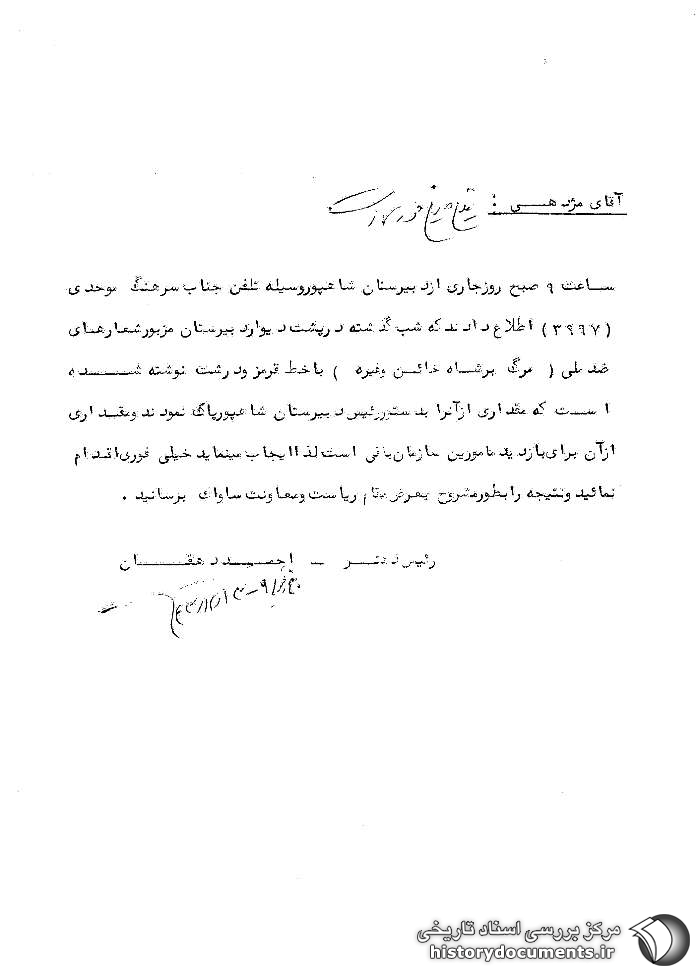 آقای مژدهی :
ساعت ۹ صبح روزجاری ازدبیرستان شاهپوروسیله تلفن جناب سرهنگ موحدی
(۳۹۹۷) اطلاع دادندکه شب گذشته درپشت دیواردبیرستان مزبورشعارهای
ضد ملی ( مرگ برشاه خائن وغیره ) باخط قرمز ودرشت نوشته شده
است که مقداری ازآنرا بدستوررئیس دبیرستان شاهپورپاک نمودند ومقداری
ازآن برای بازدید مامورین سازمان باقی است لذا ایجاب مینماید خیلی فوری اقدام
نمائید ونتیجه را بطورمشروح بعرض مقام ریاست ومعاونت ساواک برسانید .
رئیس دفتر - احمد دهقان
مرکز بررسی اسناد تاریخی
historydocuments.ir